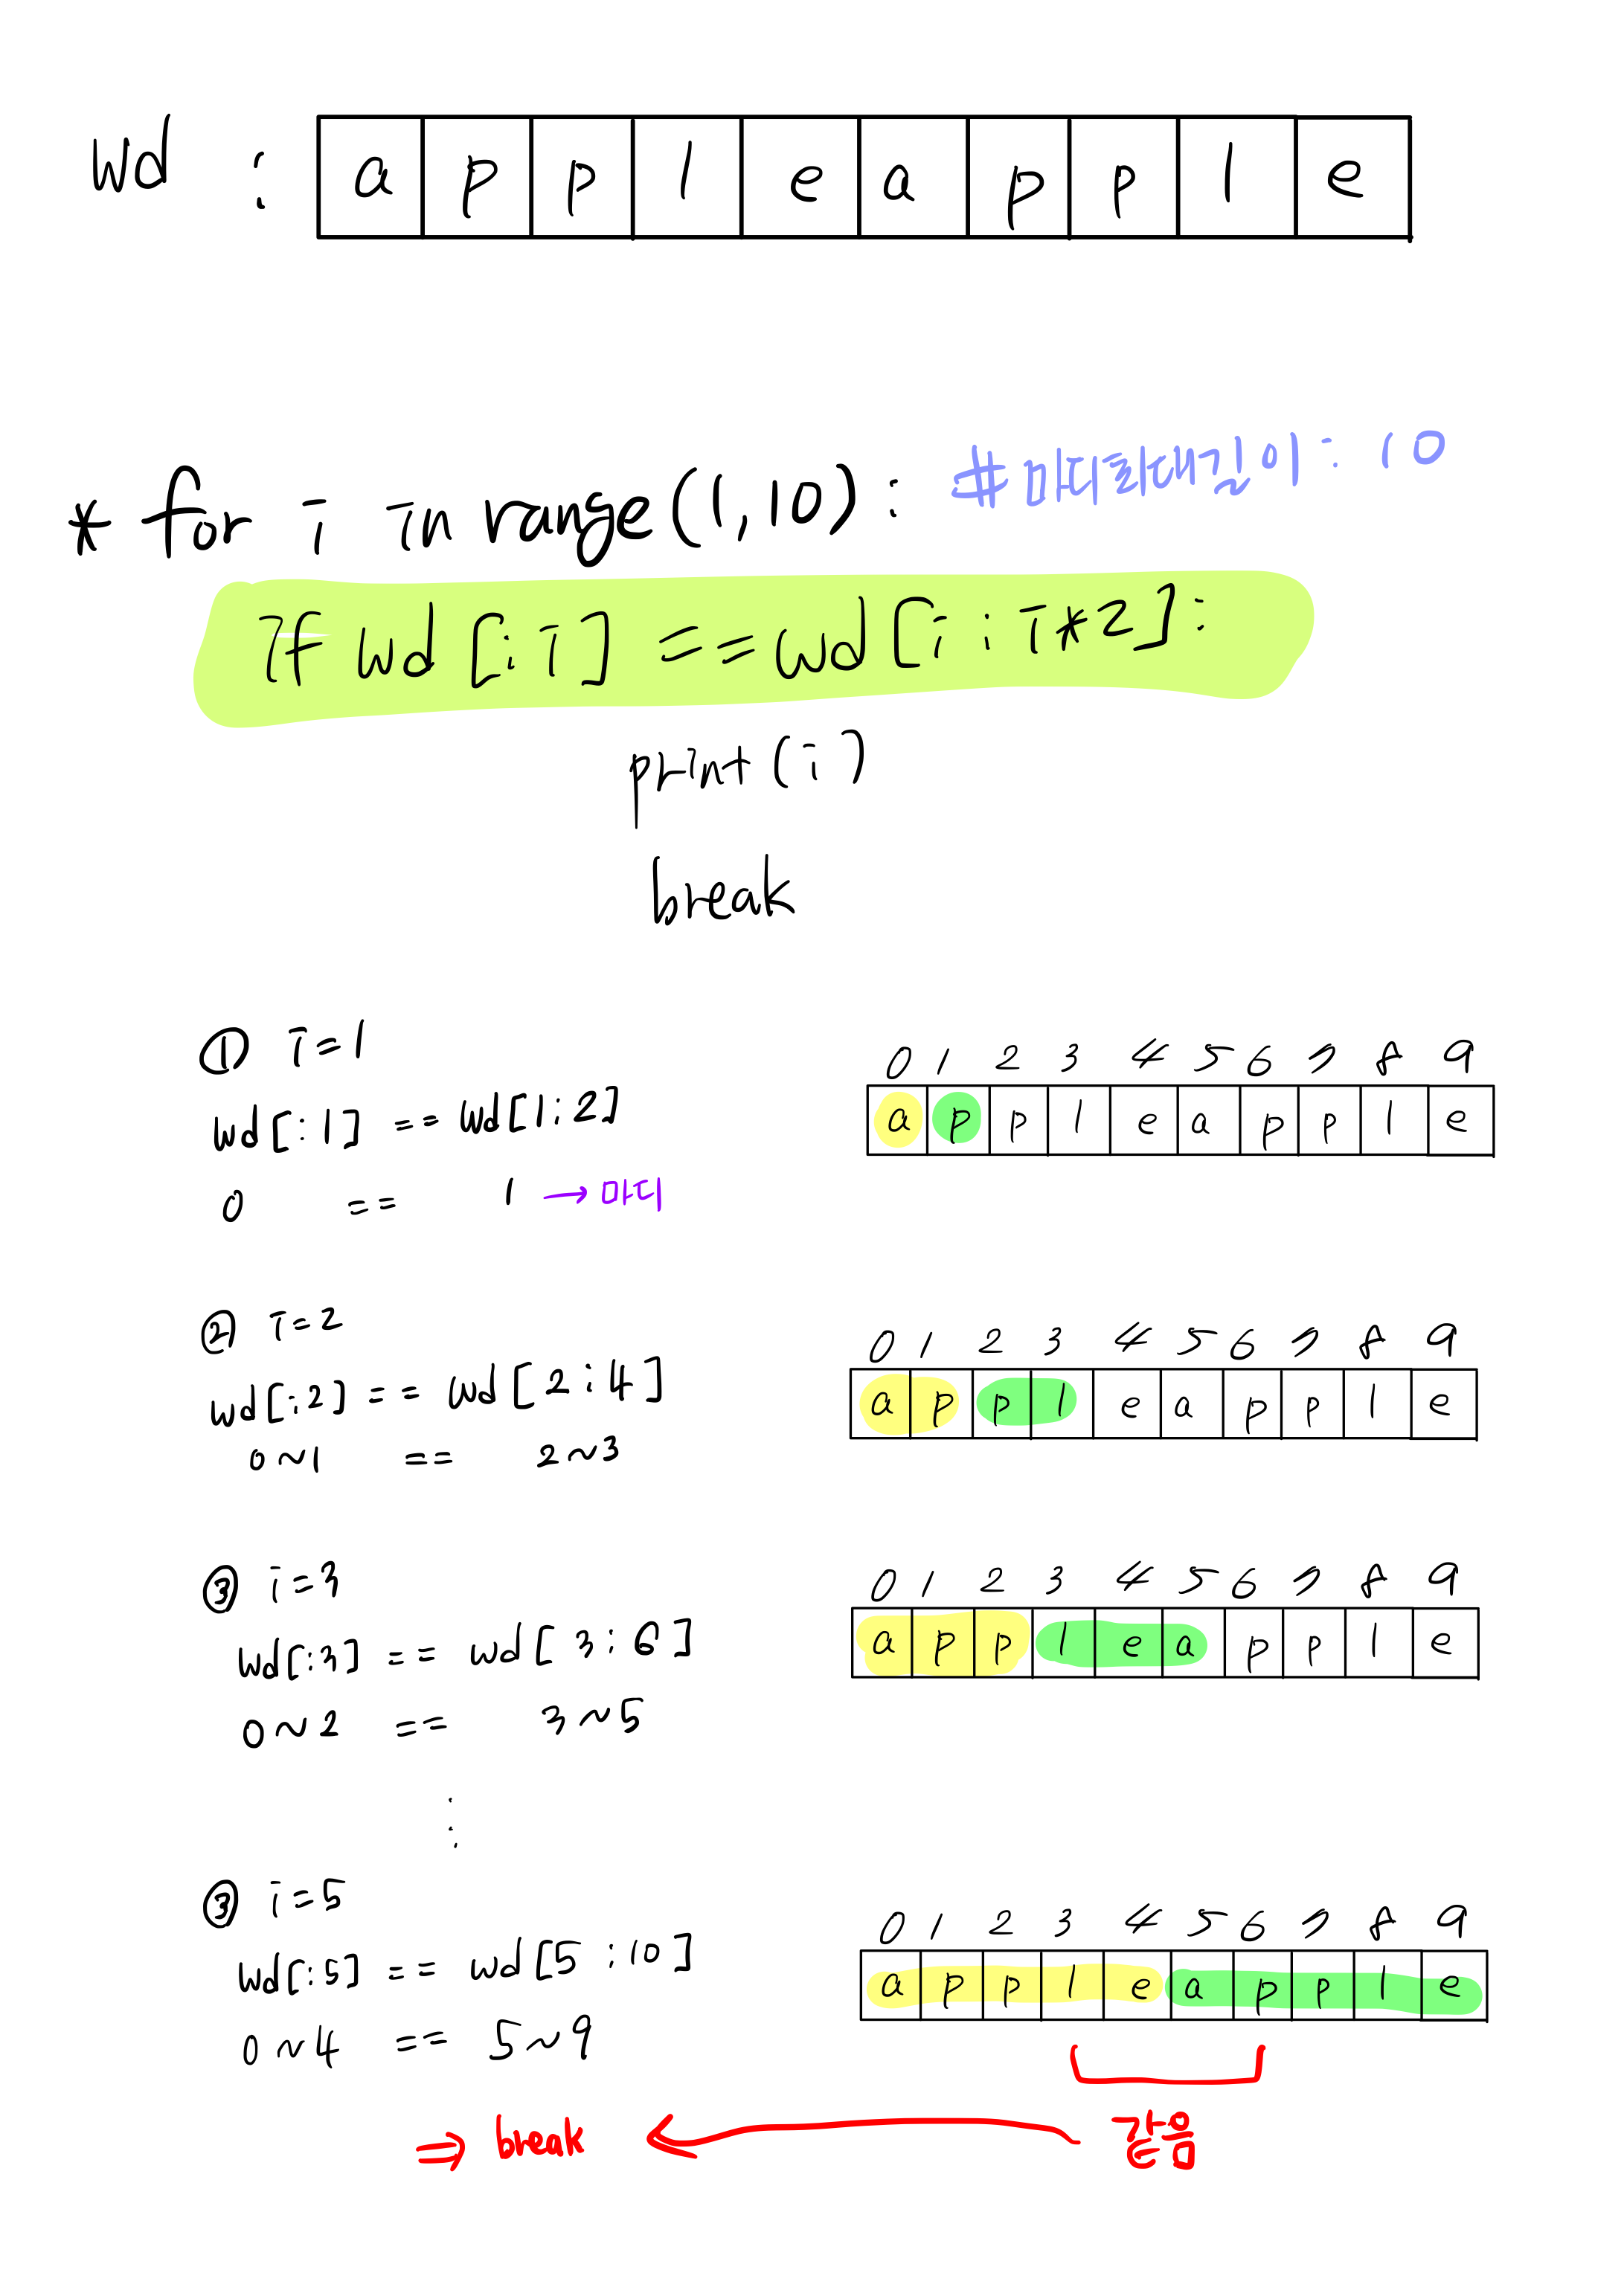 wd : a p p l e a p p l e
* for i in range(1,10): #마디최대길이: 10
if wd[:i] == wd[i:i*2]:
print(i)
break
① i=1
wd[:1] == wd[1:2]
0 == 1 → 마디
0 1 2 3 4 5 6 7 8 9
a p p l e a p p l e
② i=2
wd[:2] == wd[2:4]
0~1 == 2~3
0 1 2 3 4 5 6 7 8 9
a p p l e a p p l e
③ i=3
wd[:3] == wd[3:6]
0~2 == 3~5
0 1 2 3 4 5 6 7 8 9
a p p l e a p p l e
⋮
③ i=5
wd[:5] == wd[5:10]
0~4 == 5~9
0 1 2 3 4 5 6 7 8 9
a p p l e a p p l e
⇒ break ← 같음